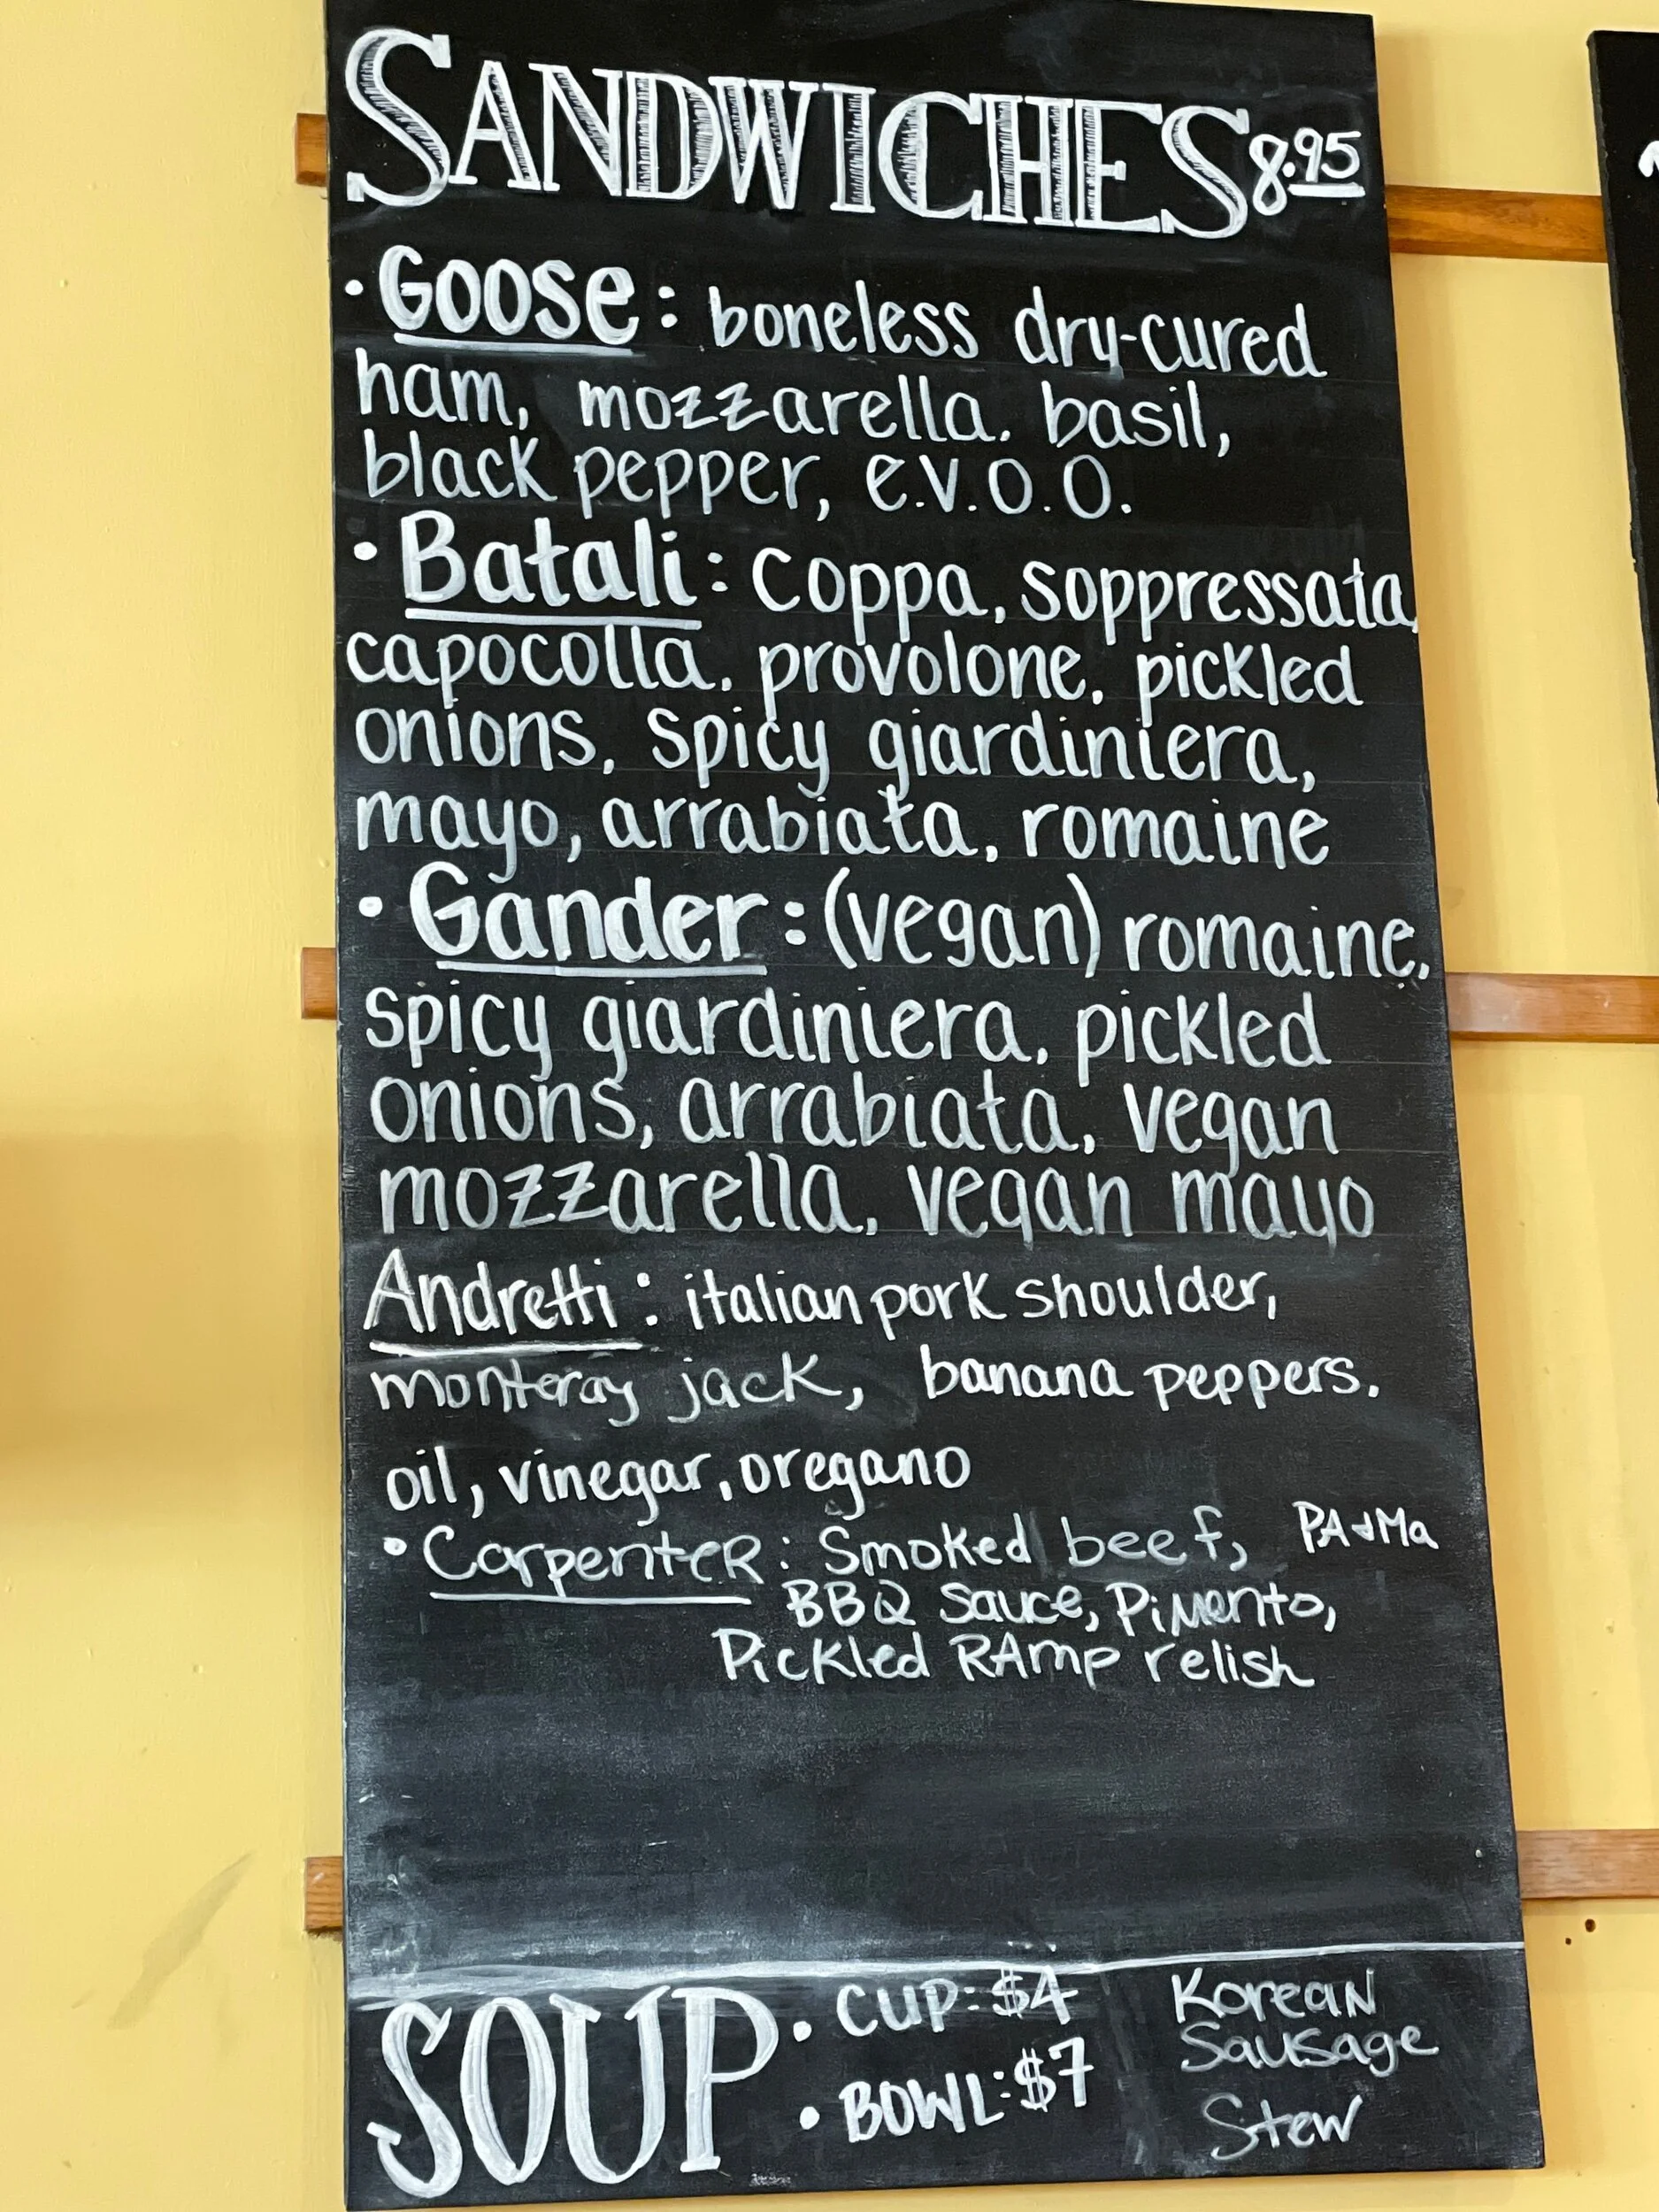 SANDWICHES 8.95
• Goose: boneless dry-cured
ham, mozzarella. basil,
black pepper, e.v.o.o.
• Batali: Coppa, soppressata,
capocolla. provolone. pickled
onions, spicy giardiniera,
mayo, arrabiata, romaine
• Gander: (vegan) romaine,
spicy giardiniera, pickled
onions, arrabiata, vegan
mozzarella, vegan mayo
Andretti: italian pork shoulder,
monteray jack, banana peppers.
oil, vinegar, oregano
• Carpenter: Smoked beef, PA & Ma
BBQ Sauce, Pimento,
Pickled RAmp relish
SOUP • CUP: $4
• BOWL: $7
Korean
Sausage
Stew